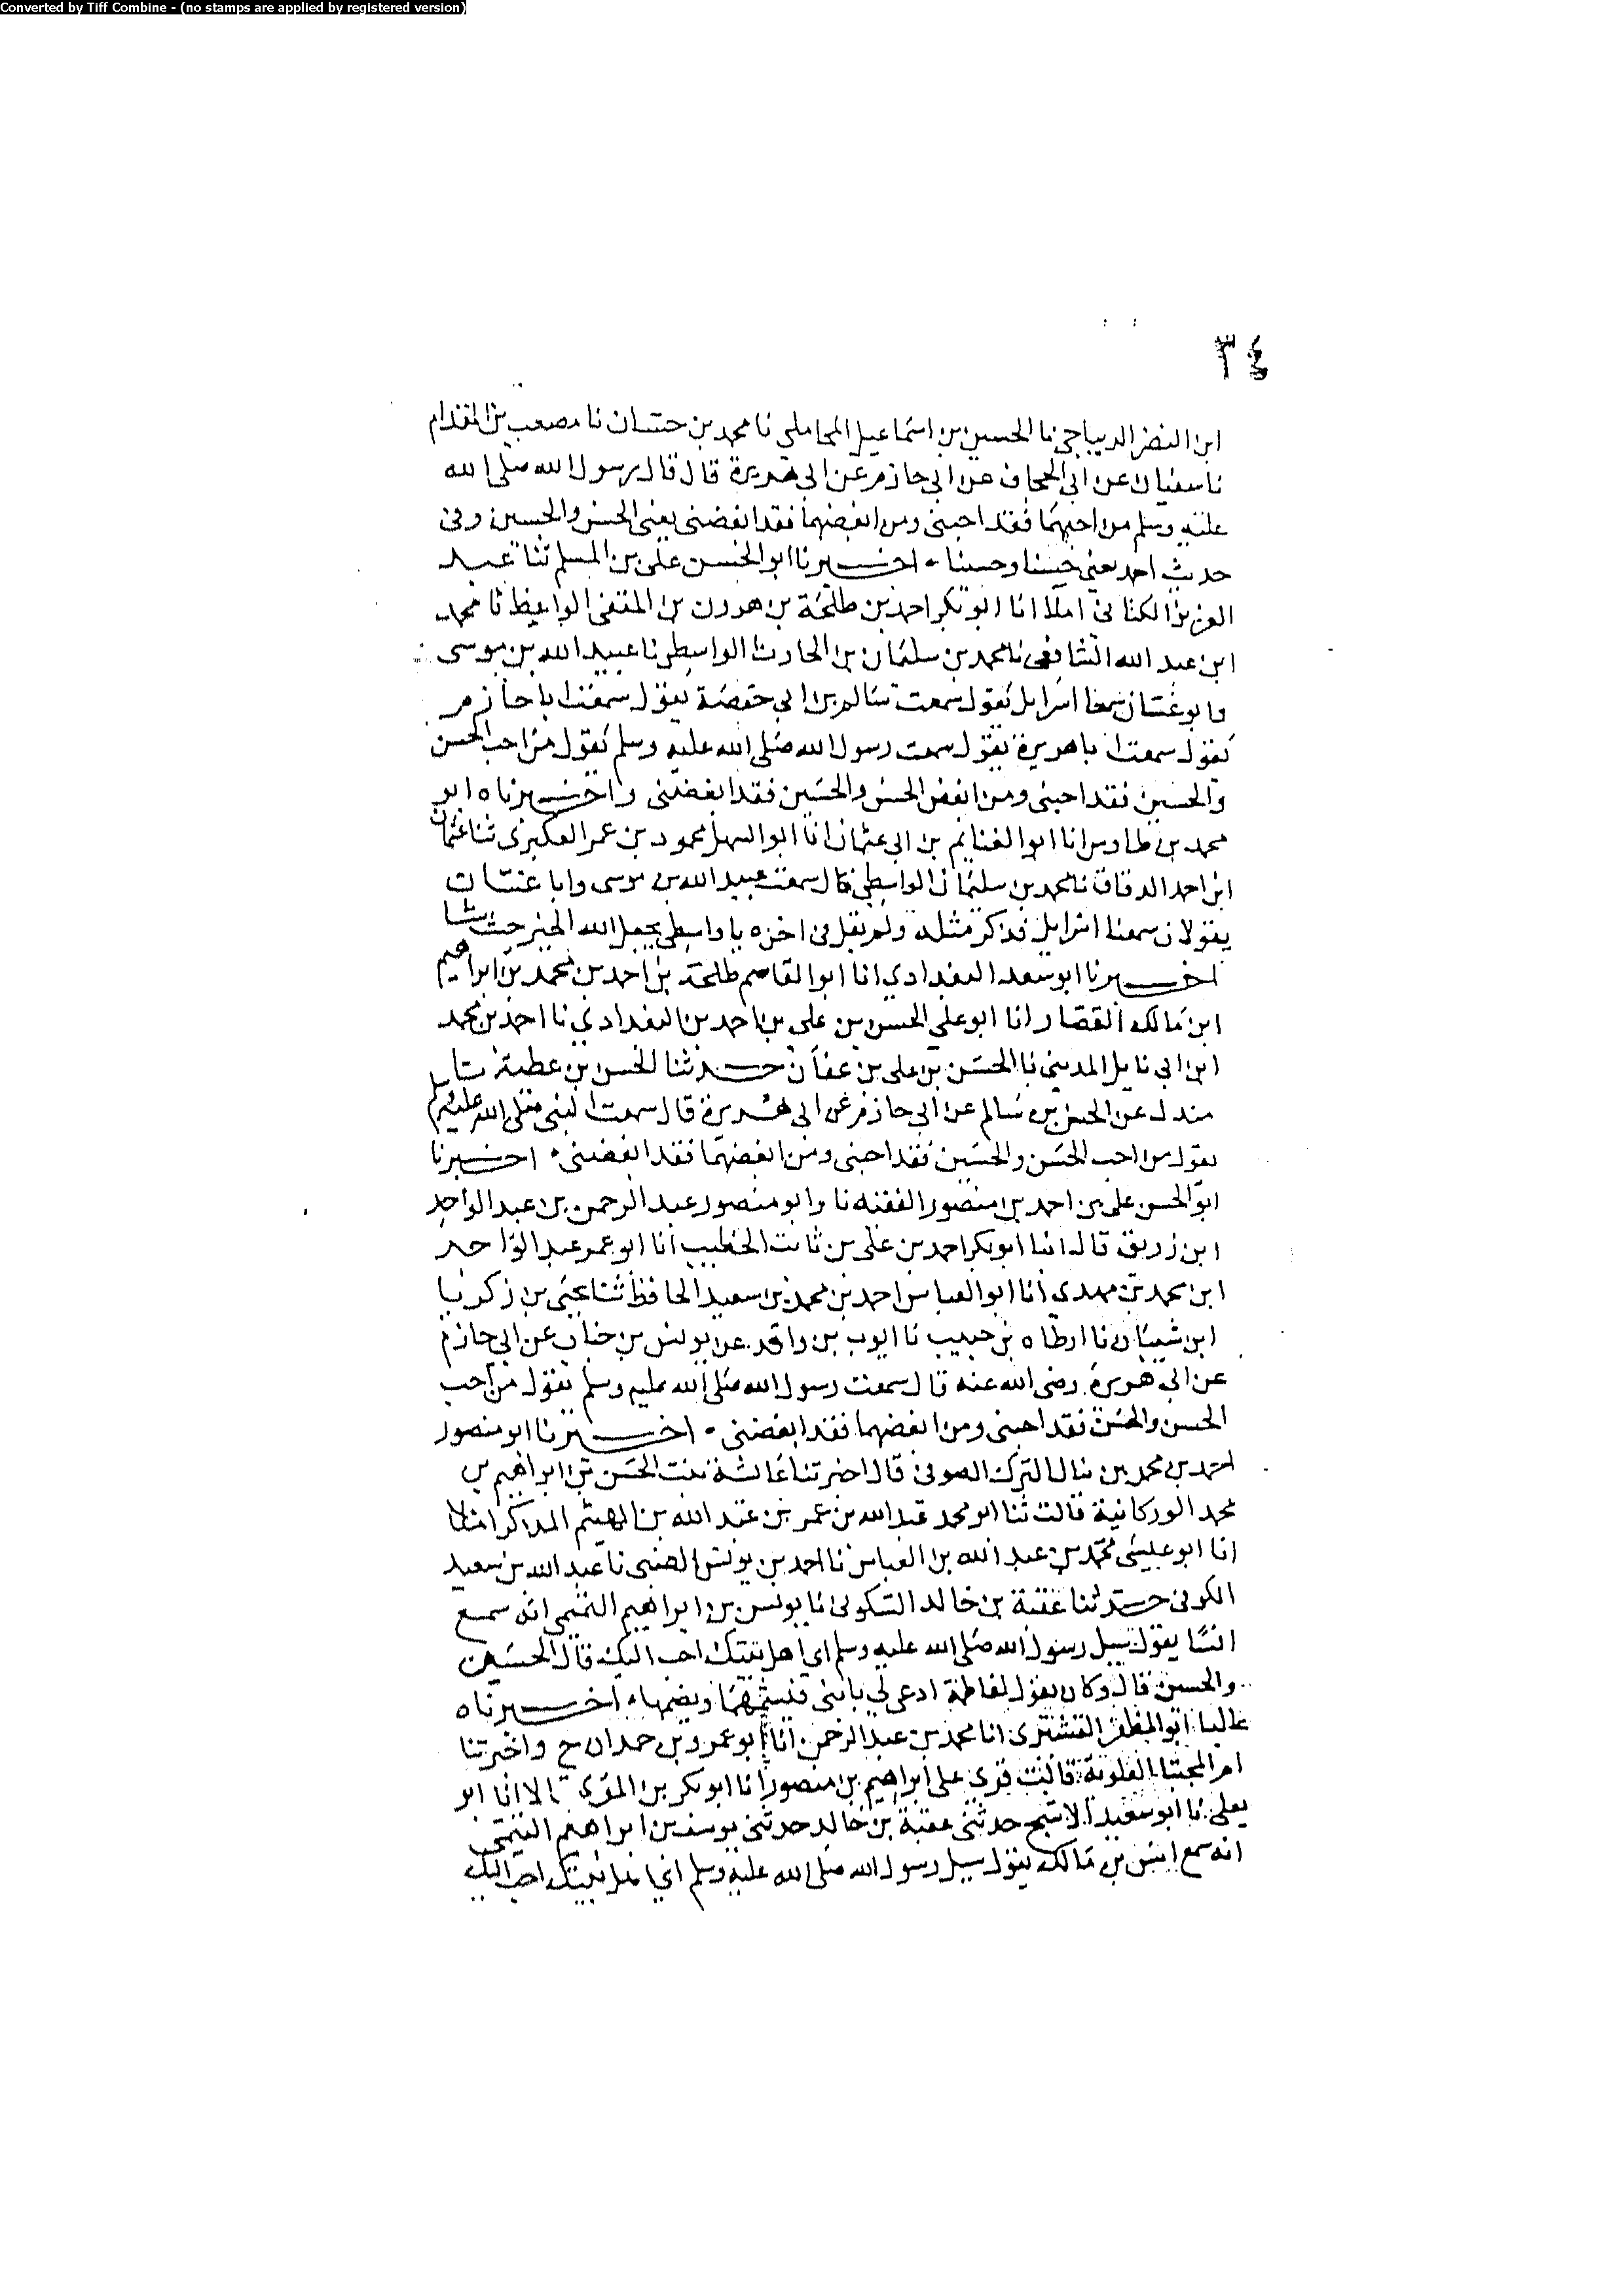 Converted by Tiff Combine - (no stamps are applied by registered version)
٣٤
ابن النضر الديباجي نا الحسين بن اسماعيل المحاملي نا محمد بن حسان نا مصعب بن المقدام
نا سفيان عن ابي الجحاف عن ابي حازم عن ابي هريرة قال قال رسول الله صلى الله
عليه وسلم من احبهما فقد احبني ومن ابغضهما فقد ابغضني يعني الحسن والحسين وفي
حديث احمد يعني حسنا وحسينا اخبرنا ابو الحسن علي بن المسلم ثنا عبد
العزيز الكناني املا انا ابو بكر احمد بن طلحة بن هرون بن المنقى الواعظ نا محمد
ابن عبد الله الشافعي نا محمد بن سليمان بن الحارث الواسطي نا عبيد الله بن موسى
وابو غسان سمعا اسرايل يقول سمعت سالم بن ابي حفصة يقول سمعت ابا حازم
يقول سمعت ابا هريرة يقول سمعت رسول الله صلى الله عليه وسلم يقول من احب الحسن
والحسين فقد احبني ومن ابغض الحسن والحسين فقد ابغضني واخبرناه ابو
محمد بن طاوس انا ابو الغنايم بن ابي عثمان انا ابو السهل محمود بن عمر العكبري ثنا عثمان
ابن احمد الدقاق نا محمد بن سليمان الواسطي قال سمعت عبيد الله بن موسى وابا غسان
يقولان سمعنا اسرايل فذكر مثله ولم يقل في اخره يا واسطي يجعل الله الخير حيث يشا
اخبرنا ابو سعد البغدادي انا ابو القاسم طلحة بن احمد بن محمد بن ابراهيم
ابن مالك القصار انا ابو علي الحسن بن علي بن احمد بن البغدادي نا احمد بن محمد
ابن ابي نايل المديني نا الحسن بن علي بن عفان حدثنا الحسن بن عطية نا
مندل عن الحسن بن سالم عن ابي حازم عن ابي هريرة قال سمعت النبي صلى الله عليه وسلم
يقول من احب الحسن والحسين فقد احبني ومن ابغضهما فقد ابغضني اخبرنا
ابو الحسن علي بن احمد بن منصور الفقيه نا وابو منصور عبد الرحمن بن عبد الواحد
ابن زريق قال انبا ابو بكر احمد بن علي بن ثابت الخطيب انا ابو عمر عبد الواحد
ابن محمد بن مهدي انا ابو العباس احمد بن محمد بن سعيد الحافظ ثنا يحيى بن زكريا
ابن شيبان نا ارطاه بن حبيب نا ايوب بن واقد عن يونس بن خباب عن ابي حازم
عن ابي هريرة رضي الله عنه قال سمعت رسول الله صلى الله عليه وسلم يقول من احب
الحسن والحسين فقد احبني ومن ابغضهما فقد ابغضني اخبرنا ابو منصور
احمد بن محمد بن ينال الترك الصوفي قال اخبرتنا عائشة بنت الحسن بن ابراهيم بن
محمد الوركانية قالت ثنا ابو محمد عبد الله بن عمر بن عبد الله بن الهيثم المذكر املا
انا ابو عيسى محمد بن عبد الله بن العباس نا احمد بن يونس الضبي نا عبد الله بن سعيد
الكوفي حدثنا عقبة بن خالد السكوني نا يونس بن ابراهيم التميمي انه سمع
انسا يقول سيل رسول الله صلى الله عليه وسلم اي اهل بيتك احب اليك قال الحسن
والحسين قال وكان يقول لفاطمة ادعي لي بابني فيشمهما ويضمها اخبرناه
عاليا ابو المظفر القشيري انا محمد بن عبد الرحمن انا ابو عمرو بن حمدان ح واخبرتنا
ام المجتبا العلوية قالت قرى على ابراهيم بن منصور انا ابو بكر بن المقرى قالا انا ابو
يعلى نا ابو سعيد الاشج حدثني عقبة بن خالد حدثني يوسف بن ابراهيم التميمي
انه سمع انس بن مالك يقول سيل رسول الله صلى الله عليه وسلم اي اهل بيتك احب اليك